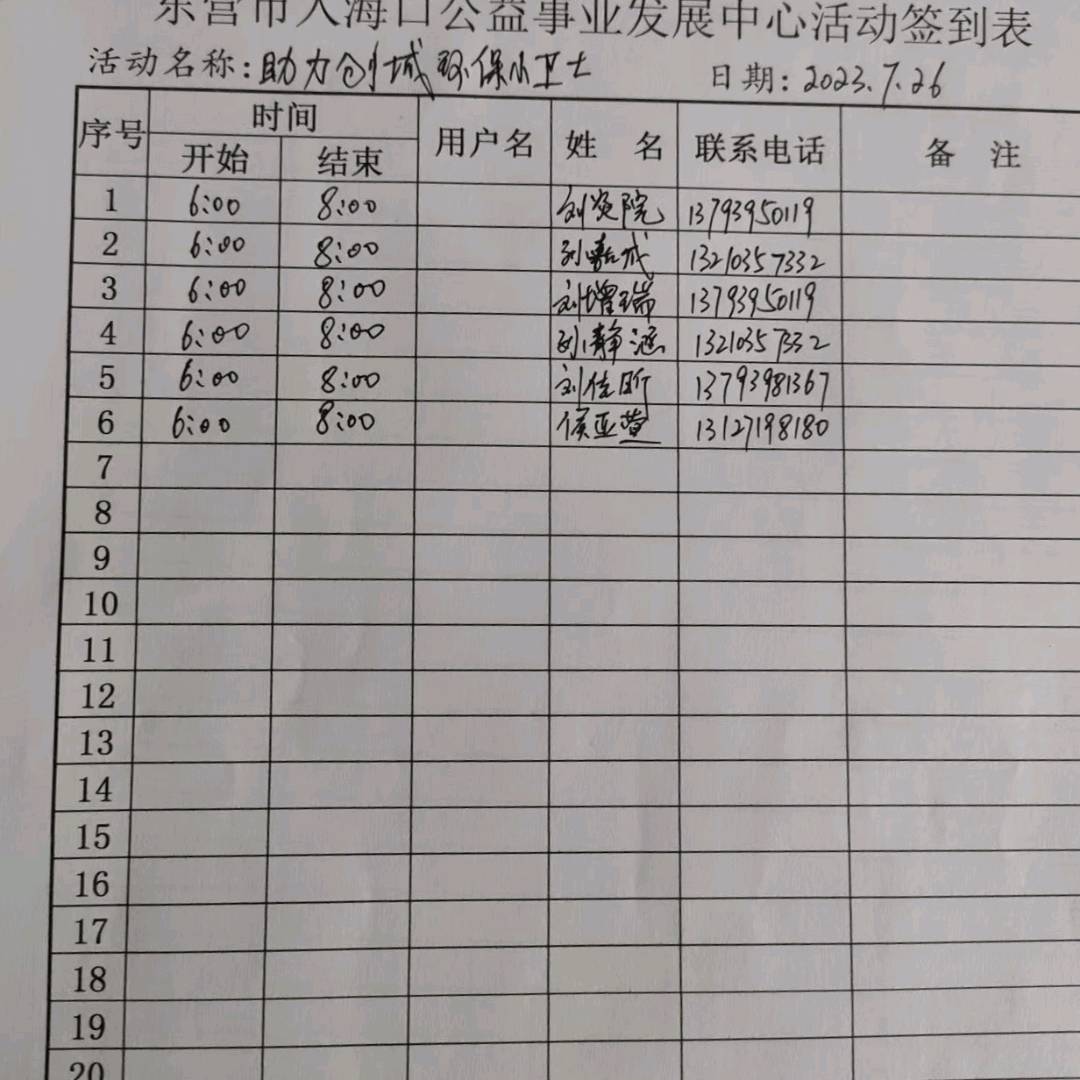 东营市入海口公益事业发展中心活动签到表
活动名称:助力创城 环保小卫士 日期:2023.7.26
序号 时间 用户名 姓名 联系电话 备注
开始 结束
1 6:00 8:00 刘贤院 13793950119
2 6:00 8:00 孙嘉成 13210357332
3 6:00 8:00 刘增瑞 13793950119
4 6:00 8:00 孙静涵 13210357332
5 6:00 8:00 刘佳昕 13793981367
6 6:00 8:00 侯亚萱 13127198180
7
8
9
10
11
12
13
14
15
16
17
18
19
20